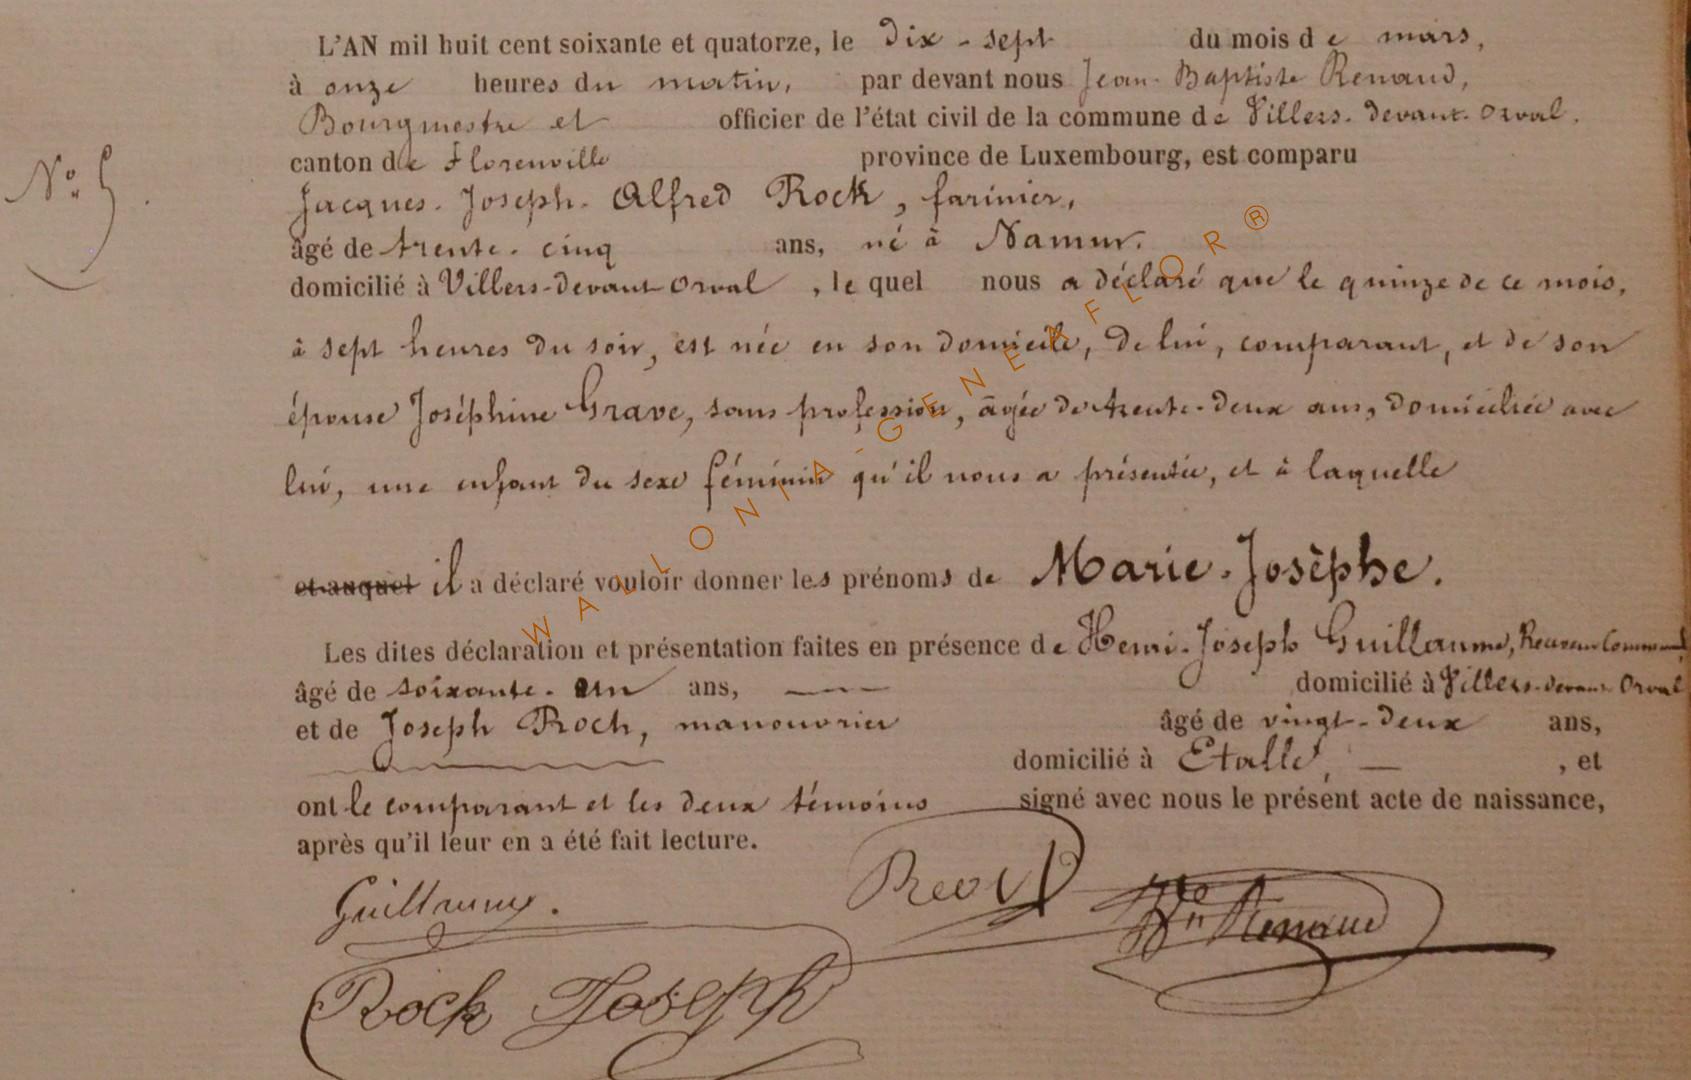 L'AN mil huit cent soixante et quatorze, le dix-sept du mois de mars,
à onze heures du matin, par devant nous Jean-Baptiste Renaud,
Bourgmestre et officier de l'état civil de la commune de Villers-devant-Orval.
canton de Florenville province de Luxembourg, est comparu
N° 5.
Jacques-Joseph-Alfred Rock, farinier,
âgé de trente-cinq ans, né à Namur.
domicilié à Villers-devant-Orval, le quel nous a déclaré que le quinze de ce mois,
à sept heures du soir, est née en son domicile, de lui, comparant, et de son
épouse Joséphine Grave, sans profession, âgée de trente-deux ans, domiciliée avec
lui, une enfant du sexe féminin qu'il nous a présentée, et à laquelle
et auquel il a déclaré vouloir donner les prénoms de Marie-Josèphe.
Les dites déclaration et présentation faites en présence de Henri-Joseph Guillaume, Receveur Communal
âgé de soixante-un ans, — domicilié à Villers-devant-Orval
et de Joseph Roch, manouvrier âgé de vingt-deux ans,
domicilié à Etalle, — , et
ont le comparant et les deux témoins signé avec nous le présent acte de naissance,
après qu'il leur en a été fait lecture.
Guillaume.
Renaud
Rock Joseph
WALLONIA-GENEAFLOR®